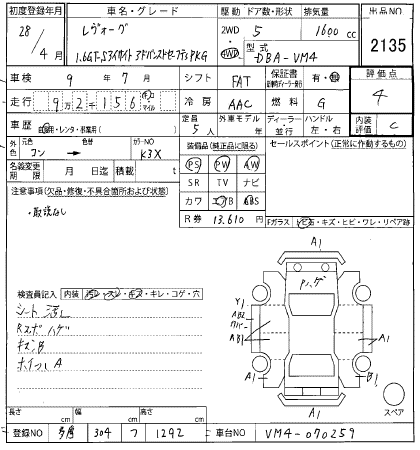 初度登録年月 車名・グレード 駆動 ドア数・形状 排気量 出品NO
28/4月 レヴォーグ 2WD 5 1600cc 2135
1.6GT-Sアイサイト アドバンストセーフティPKG 4WD 型式 DBA-VM4
車検 9年7月 シフト FAT 保証書 有・無 評価点
走行 92156 km マイル 冷房 AAC 燃料 G 4
車歴 自家用・レンタ・事業用( ) 定員 5人 外車モデル 年 ディーラー・並行 ハンドル 左・右 内装評価 C
外色 元色 コン 色替 → カラーNO K3X 装備品(純正品に限る) セールスポイント(正常に作動するもの)
名義変更期限 月 日迄 積載 t PS PW AW
SR TV ナビ
注意事項(欠品・修復・不具合箇所および状態) カワ エアB ABS
・取説なし R券 13,610円 Fガラス トビ石・キズ・ヒビ・ワレ・リペア跡
A1
Pハゲ
検査員記入 内装 汚レ・スレ・キズ・キレ・コゲ・穴 Y1
シート汚レ AB2
Rスポハゲ AB1 A1
キズB
ホイールA A1 B1
A1 スペア
長さ cm 幅 cm 高さ cm
登録NO 多摩 304 フ 1292 車台NO VM4-070259